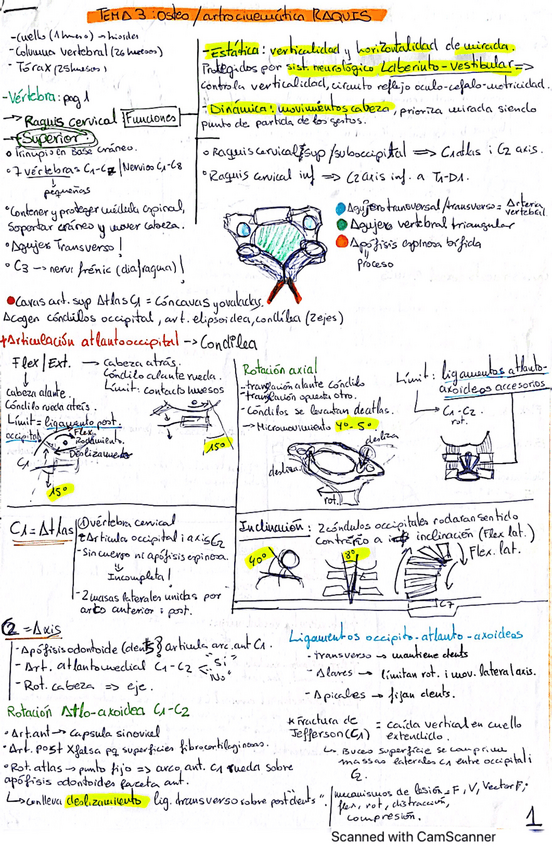 TEMA 3: osteo/artrocinemática RAQUIS
-cuello (1 hueso) → hioides
-Columna vertebral (26 huesos)
-Tórax (25 huesos)
-Vértebra: pag 1
→ Raquis Cervical
Funciones
→ Superior:
• Principio en Base cráneo.
• 7 vértebras C1-C7 / Nervios C1-C8
pequeños
• Contener y proteger médula espinal,
soportar cráneo y mover cabeza.
• Agujero Transverso!
• C3 → nervi frénic (diafragma)!
-Estática: verticalidad y horizontalidad de mirada.
Protegidos por sist. neurológico Laberinto-vestibular ⇒
controla verticalidad, circuito reflejo oculo-cefalo-motricidad.
-Dinámica: movimientos cabeza, prioriza mirada siendo
punto de partida de los gestos.
• Raquis cervical sup/suboccipital ⇒ C1 atlas i C2 axis.
• Raquis cervical inf ⇒ C2 axis inf. a T1-D1.
Agujero transversal/transverso = Arteria
vertebral
Agujero vertebral triangular
Apófisis espinosa bífida
proceso
Caras art. sup Atlas C1 = Cóncavas y ovaladas.
Acogen cóndilos occipital, art. elipsoidea, condílea (2 ejes)
+Articulación atlantooccipital → Condílea
Flex / Ext. → cabeza atrás.
Cóndilo alante rueda.
Límit: contacto huesos
cabeza alante.
Cóndilo rueda atrás.
Límit = ligamento post.
occipital
Flex
Rodamiento.
Deslizamiento
C1
15º
15º
Rotación axial
-translación alante cóndilo
-translación opuesta otro.
-Cóndilos se levantan de atlas.
→ Micromovimiento 4º-5º
desliza
desliza
rot.
Límit: ligamentos atlanto-
axoideos accesorios
→ C1-C2
rot.
C1 = Atlas
① vértebra cervical
• Articula occipital i axis C2
-Sin cuerpo ni apófisis espinosa.
Incompleta!
-2 masas laterales unidas por
arco anterior i post.
Inclinación: 2 cóndulos occipitales rodaran sentido
contrario a inclinación (Flex lat.)
40º
8º
Flex. lat.
C7
C2 = Axis
-Apófisis odontoide (dents) articula arc. ant C1.
-Art. atlantomedial C1-C2
"Si"
"No"
-Rot. cabeza ⇒ eje.
Rotación Atlo-axoidea C1-C2
• Art. ant → capsula sinovial
• Art. post X falsa pq superficies fibrocartilaginosas.
• Rot. atlas → punto fijo ⇒ arco, ant. C1 rueda sobre
apófisis odontoides faceta ant.
↳ conlleva deslizamiento lig. transverso sobre post "dents".
Ligamentos occipito-atlanto-axoideos
-transverso → mantiene dents
-Alares → limitan rot. i mov. lateral axis.
-Apicales → fijan dents.
* Fractura de
Jefferson (C1) = caída vertical en cuello
extendido.
↳ Hueso superficie se comprime
massas laterales C1 entre occipital i
C2.
mecanismos de lesión = F, V, Vector F;
flex, rot, distracción,
compresión.
1
Scanned with CamScanner